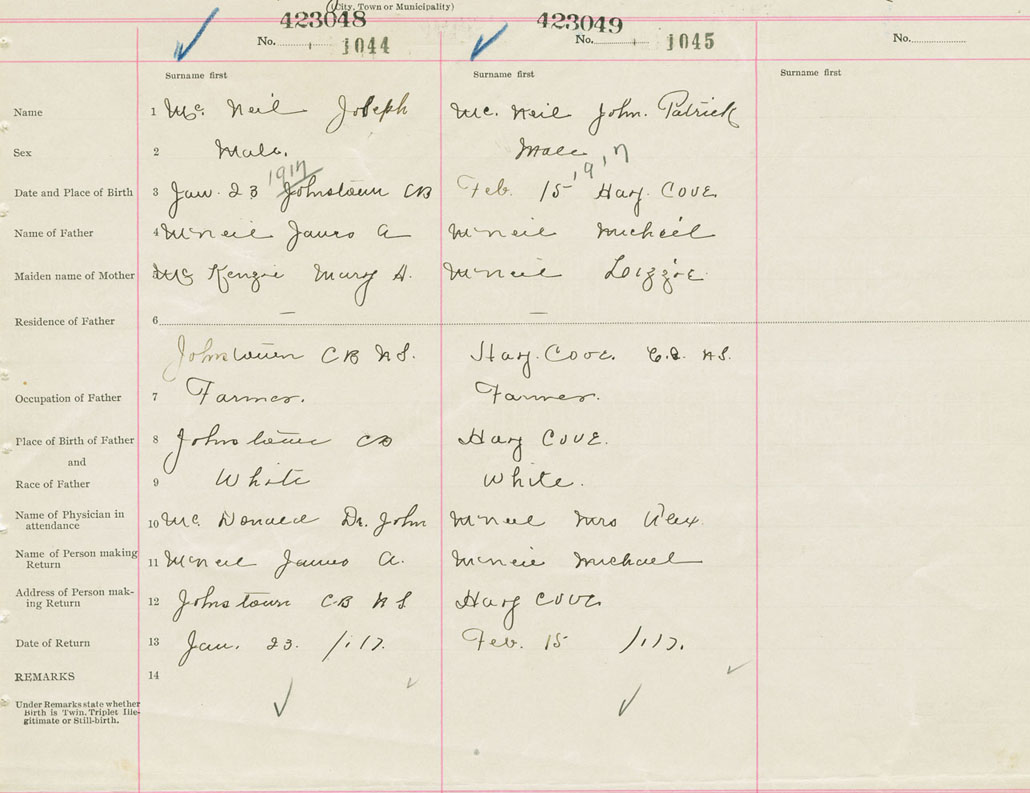 (City, Town or Municipality)
423048 423049
No. 1044 No. 1045 No.
Surname first Surname first Surname first
Name 1 Mc. Neil Joseph Mc. Neil John. Patrick
Sex 2 Male. Male
1917 1917
Date and Place of Birth 3 Jan. 23 Johnstown CB Feb. 15 Hay Cove
Name of Father 4 McNeil James A McNeil Michael
Maiden name of Mother 5 Mc Kenzie Mary A. McNeil Lizzie
Residence of Father 6 — —
Johnstown CB NS. Hay. Cove. C.B NS.
Occupation of Father 7 Farmer. Farmer.
Place of Birth of Father 8 Johnstown CB Hay Cove.
and
Race of Father 9 White White.
Name of Physician in attendance 10 Mc. Donald Dr. John McNeil Mrs Alex
Name of Person making Return 11 McNeil James A. McNeil Michael
Address of Person mak-ing Return 12 Johnstown CB NS Hay Cove
Date of Return 13 Jan. 23. /.17. Feb. 15 /.17.
REMARKS 14
Under Remarks state whether
Birth is Twin, Triplet Ille-
gitimate or Still-birth.